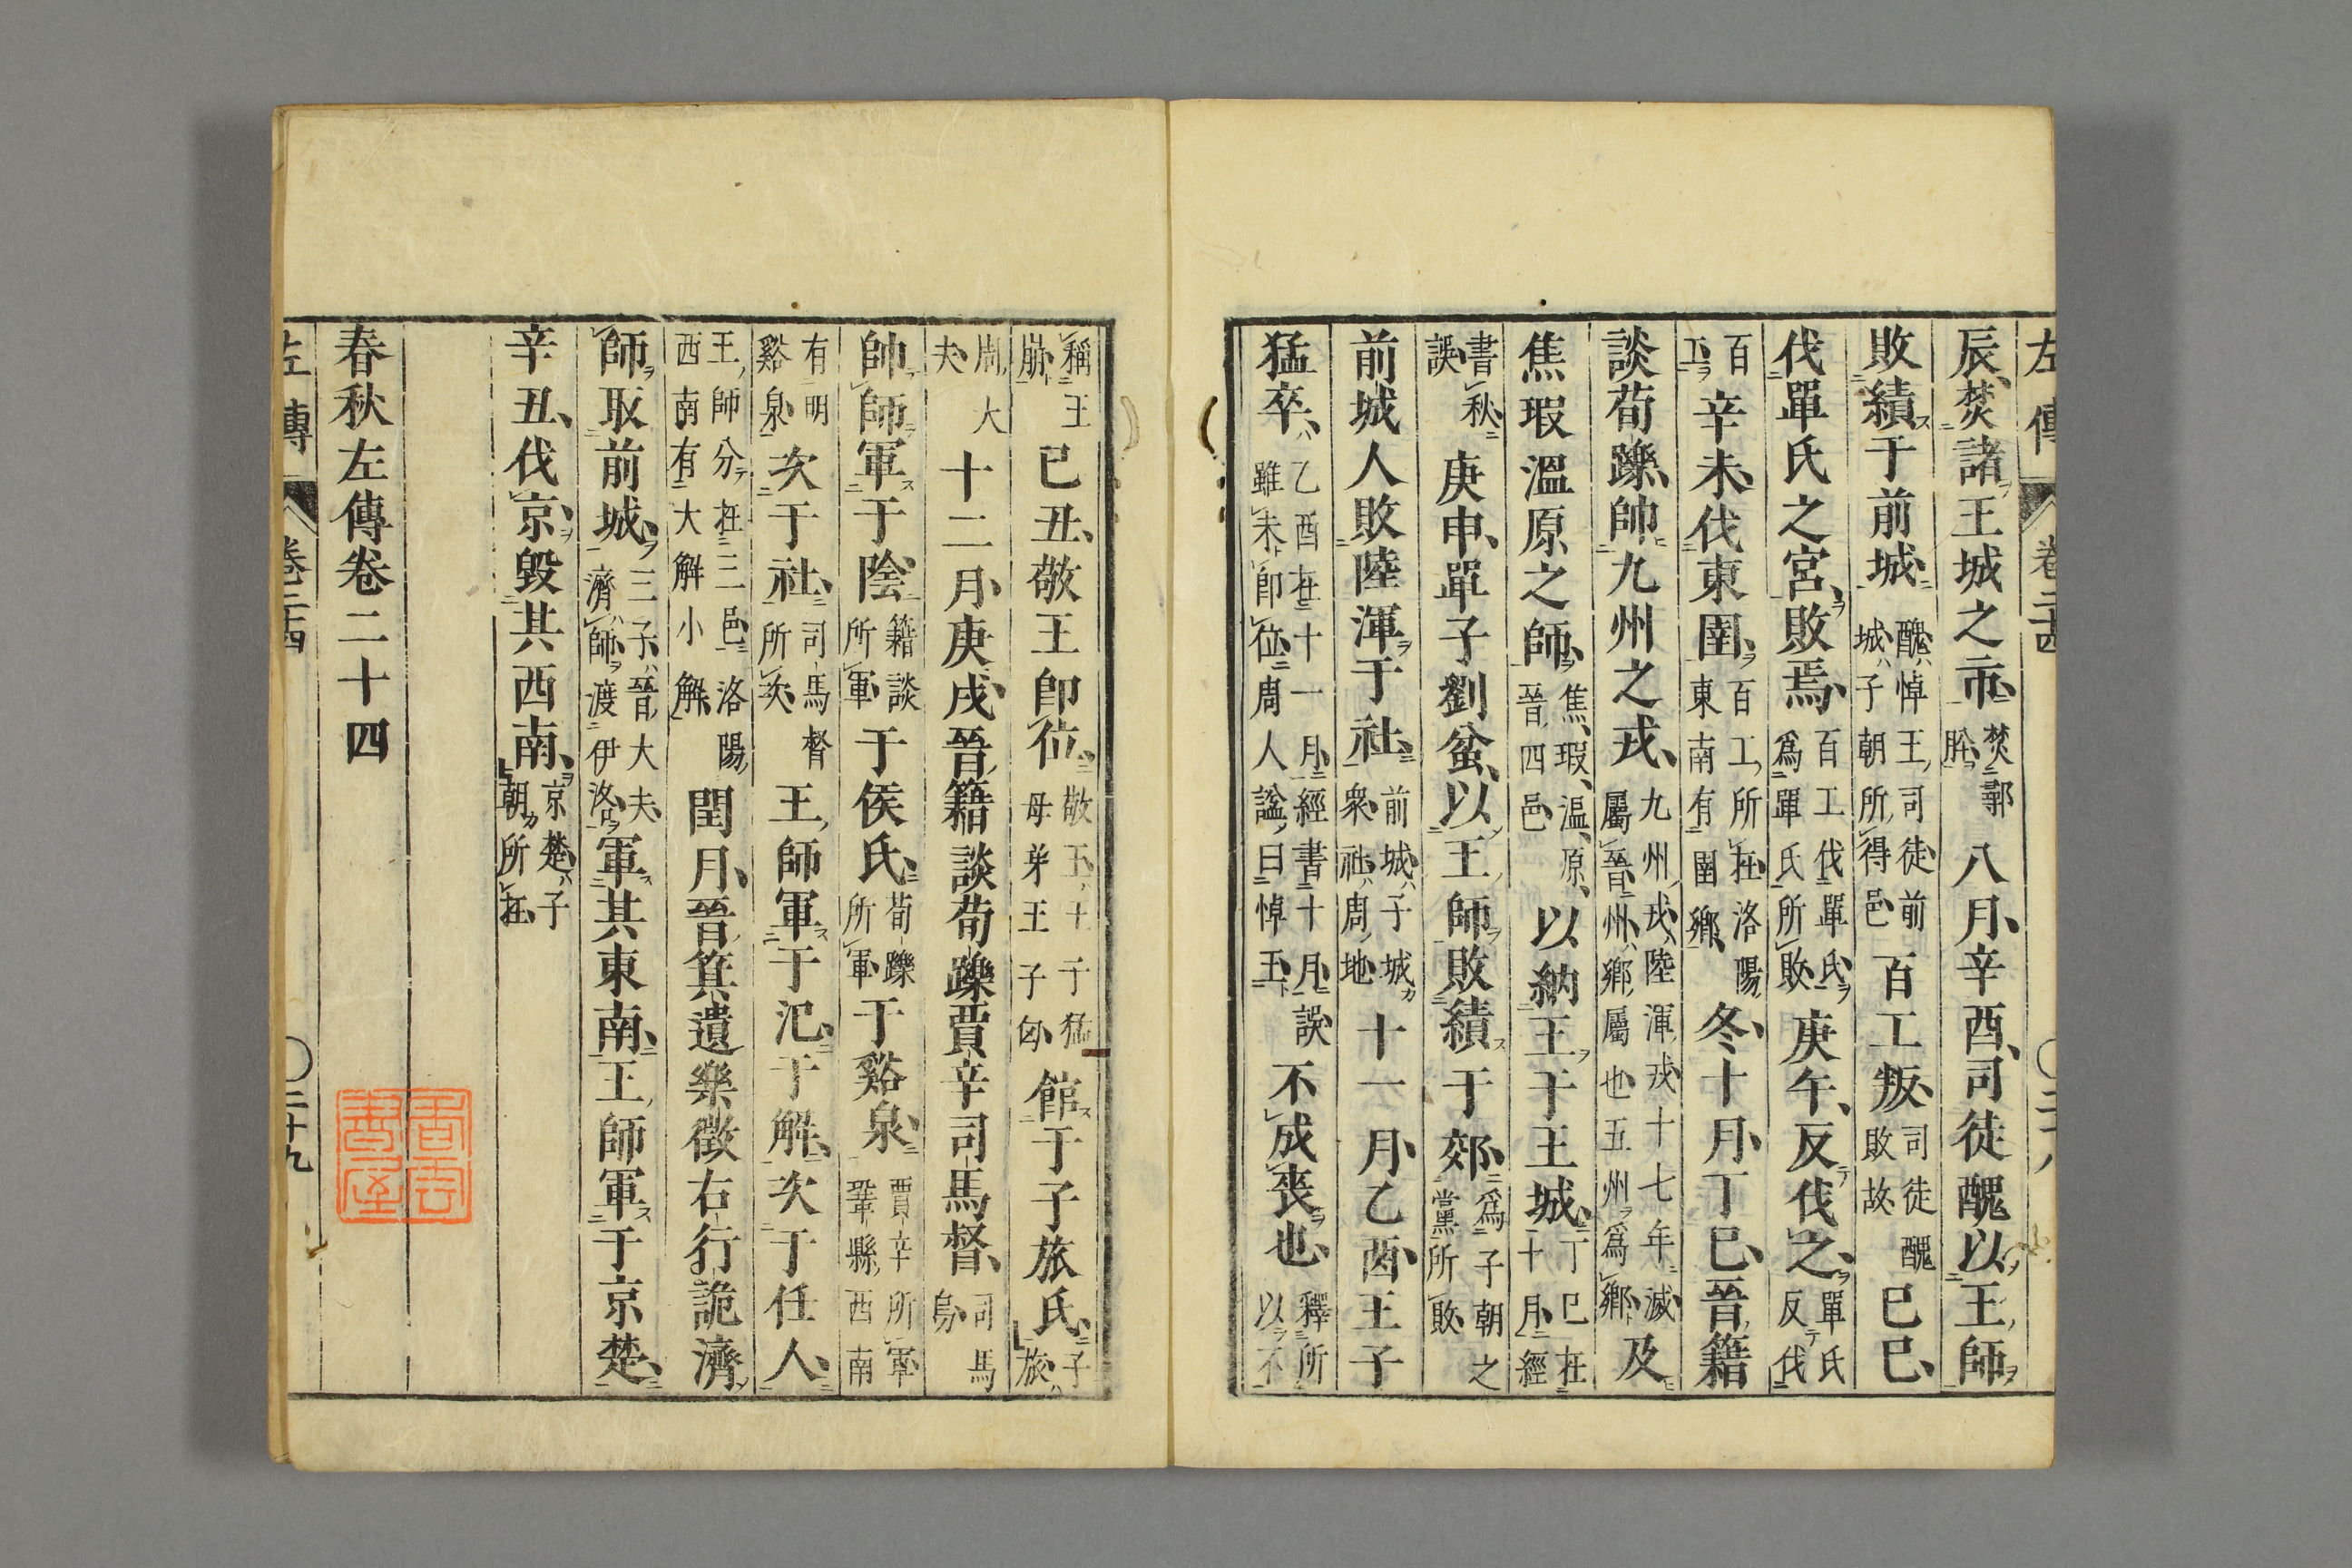 左傳 卷二十四 ○二十八
辰焚諸王城之市焚鄩肸八月辛酉司徒醜以王師
敗績于前城醜悼王司徒前城子朝所得邑百工叛司徒醜敗故己巳
伐單氏之宮敗焉百工伐單氏爲單氏所敗庚午反伐之單氏反伐
百工辛未伐東圉百工所在洛陽東南有圉鄉冬十月丁巳晉籍
談荀躒帥九州之戎九州戎陸渾戎十七年滅屬晉州鄉屬也五州爲鄉及
焦瑕溫原之師焦瑕溫原晉四邑以納王于王城丁巳在十月經
書秋誤庚申單子劉蚠以王師敗績于郊爲子朝之黨所敗
前城人敗陸渾于社前城子城衆社周地十一月乙酉王子
猛卒乙酉在十一月經書十月誤雖未卽位周人謚曰悼王不成喪也釋所以不
稱王崩己丑敬王卽位敬王王子猛母弟王子匄館于子旅氏子旅
周大夫十二月庚戌晉籍談荀躒賈辛司馬督司馬烏
帥師軍于陰籍談所軍于侯氏荀躒所軍于谿泉賈辛所軍鞏縣西南
有明谿泉次于社司馬督所次王師軍于氾于解次于任人
王師分在三邑洛陽西南有大解小解閏月晉箕遺樂徵右行詭濟
師取前城三子晉大夫濟師渡伊洛軍其東南王師軍于京楚
辛丑伐京毀其西南京楚子朝所在
春秋左傳卷二十四
左傳 卷二十四 ○二十九